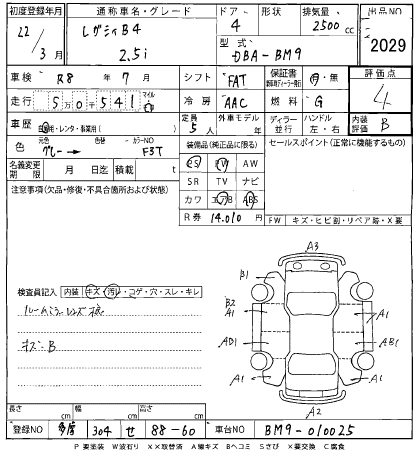 初度登録年月 通称車名・グレード ドア 形状 排気量 出品NO
22/3月 レガシィB4 2.5i 4 2500cc 2029
型式 DBA-BM9
車検 R8年7月 シフト FAT 保証書 有・無 評価点 4
走行 5万0千541 マイル 冷房 AAC 燃料 G
車歴 自家用・レンタ・事業用( ) 定員 5人 外車モデル 年 ディーラー 並行 ハンドル 左・右 内装評価 B
色 元色 グレー → 色替 カラーNO F3T
装備品(純正品に限る) セールスポイント(正常に機能するもの)
名義変更期限 月 日迄 積載 t
PS PW AW
SR TV ナビ
カワ エアB ABS
R券 14,010円
FW キズ・ヒビ割・リペア跡・X要
注意事項(欠品・修復・不具合箇所および状態)
検査員記入 内装 キズ・汚れ・コゲ・穴・スレ・キレ
ルームミラー
A3
B1 A1
B2 A1 A1
AD1 AB1
A1 A1
A2
長さ cm 幅 cm 高さ cm
登録NO 多摩 304 せ 88-60 車台NO BM9-010025
P 要塗装 W波石り XX取替済 A線キズ Bヘコミ Sさび X要交換 C腐食